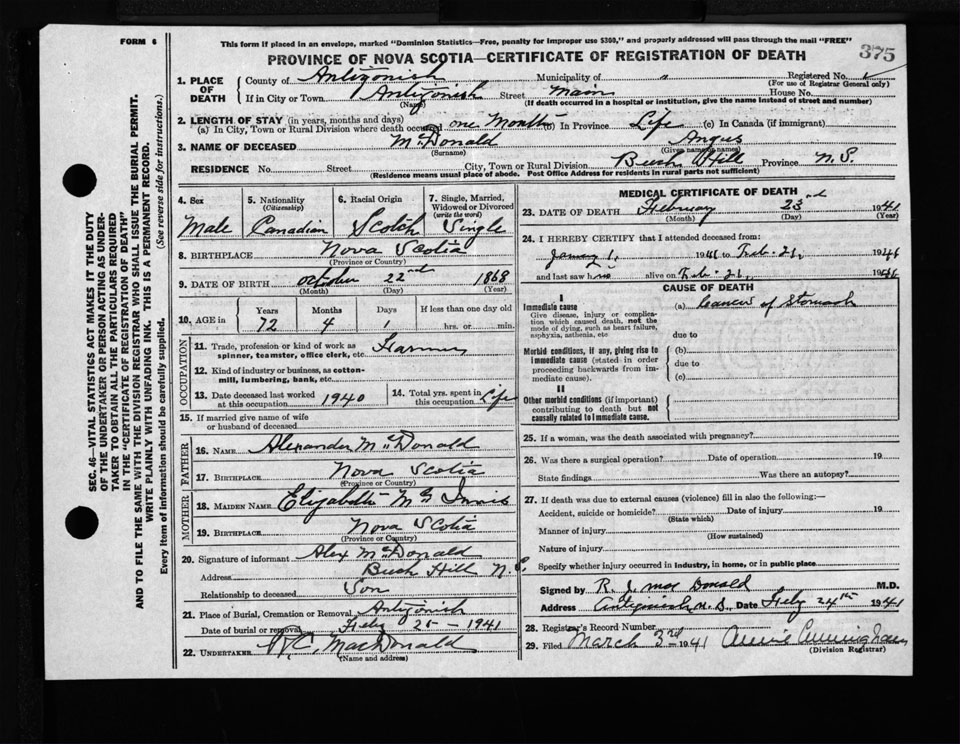 FORM 6
This form if placed in an envelope, marked "Dominion Statistics—Free, penalty for improper use $300," and properly addressed will pass through the mail "FREE"
375
PROVINCE OF NOVA SCOTIA—CERTIFICATE OF REGISTRATION OF DEATH
SEC. 46—VITAL STATISTICS ACT MAKES IT THE DUTY
OF THE UNDERTAKER OR PERSON ACTING AS UNDER-
TAKER TO OBTAIN ALL THE PARTICULARS REQUIRED
IN THE "CERTIFICATE OF REGISTRATION OF DEATH"
AND TO FILE THE SAME WITH THE DIVISION REGISTRAR WHO SHALL ISSUE THE BURIAL PERMIT.
WRITE PLAINLY WITH UNFADING INK. THIS IS A PERMANENT RECORD.
Every item of information should be carefully supplied. (See reverse side for instructions.)
1. PLACE OF DEATH
County of Antigonish Municipality of " Registered No.
(For use of Registrar General only)
If in City or Town Antigonish Street Main House No.
(Name) (If death occurred in a hospital or institution, give the name instead of street and number)
2. LENGTH OF STAY (in years, months and days)
(a) In City, Town or Rural Division where death occurred one Month (b) In Province Life (c) In Canada (if immigrant)
3. NAME OF DECEASED McDonald Angus
(Surname) (Given name or names)
RESIDENCE No. Street City, Town or Rural Division Bush Hill Province N.S.
(Residence means usual place of abode. Post Office Address for residents in rural parts not sufficient)
4. Sex
Male
5. Nationality
(Citizenship)
Canadian
6. Racial Origin
Scotch
7. Single, Married,
Widowed or Divorced
(write the word)
Single
8. BIRTHPLACE Nova Scotia
(Province or Country)
9. DATE OF BIRTH October 22nd 1868
(Month) (Day) (Year)
10. AGE in Years Months Days If less than one day old
72 4 1 hrs. or min.
OCCUPATION
11. Trade, profession or kind of work as
spinner, teamster, office clerk, etc. Farmer
12. Kind of industry or business, as cotton-
mill, lumbering, bank, etc.
13. Date deceased last worked
at this occupation 1940
14. Total yrs. spent in
this occupation Life
15. If married give name of wife
or husband of deceased
FATHER
16. NAME Alexander McDonald
17. BIRTHPLACE Nova Scotia
(Province or Country)
MOTHER
18. MAIDEN NAME Elizabeth McInnis
19. BIRTHPLACE Nova Scotia
(Province or Country)
20. Signature of informant Alex McDonald
Address Bush Hill N.S.
Relationship to deceased Son
21. Place of Burial, Cremation or Removal Antigonish
Date of burial or removal Feby 25 - 1941
22. UNDERTAKER R.C. MacDonald
(Name and address)
MEDICAL CERTIFICATE OF DEATH
23. DATE OF DEATH February 23rd 1941
(Month) (Day) (Year)
24. I HEREBY CERTIFY that I attended deceased from:
January 1, 1941 to Feb. 21, 1941
and last saw him alive on Feb. 21, 1941
CAUSE OF DEATH
I
Immediate cause
Give disease, injury or complica-
tion which caused death, not the
mode of dying, such as heart failure,
asphyxia, asthenia, etc
(a) Cancer of Stomach
due to
Morbid conditions, if any, giving rise to
immediate cause (stated in order
proceeding backwards from im-
mediate cause).
(b)
due to
(c)
II
Other morbid conditions (if important)
contributing to death but not
causally related to immediate cause.
25. If a woman, was the death associated with pregnancy?
26. Was there a surgical operation? Date of operation 19
State findings Was there an autopsy?
27. If death was due to external causes (violence) fill in also the following:—
Accident, suicide or homicide? Date of injury 19
(State which)
Manner of injury
(How sustained)
Nature of injury
Specify whether injury occurred in industry, in home, or in public place
Signed by R. J. Mac Donald M.D.
Address Antigonish N.S. Date Feby 24th 1941
28. Registrar's Record Number
29. Filed March 3rd 1941 Annie Cunningham
(Division Registrar)